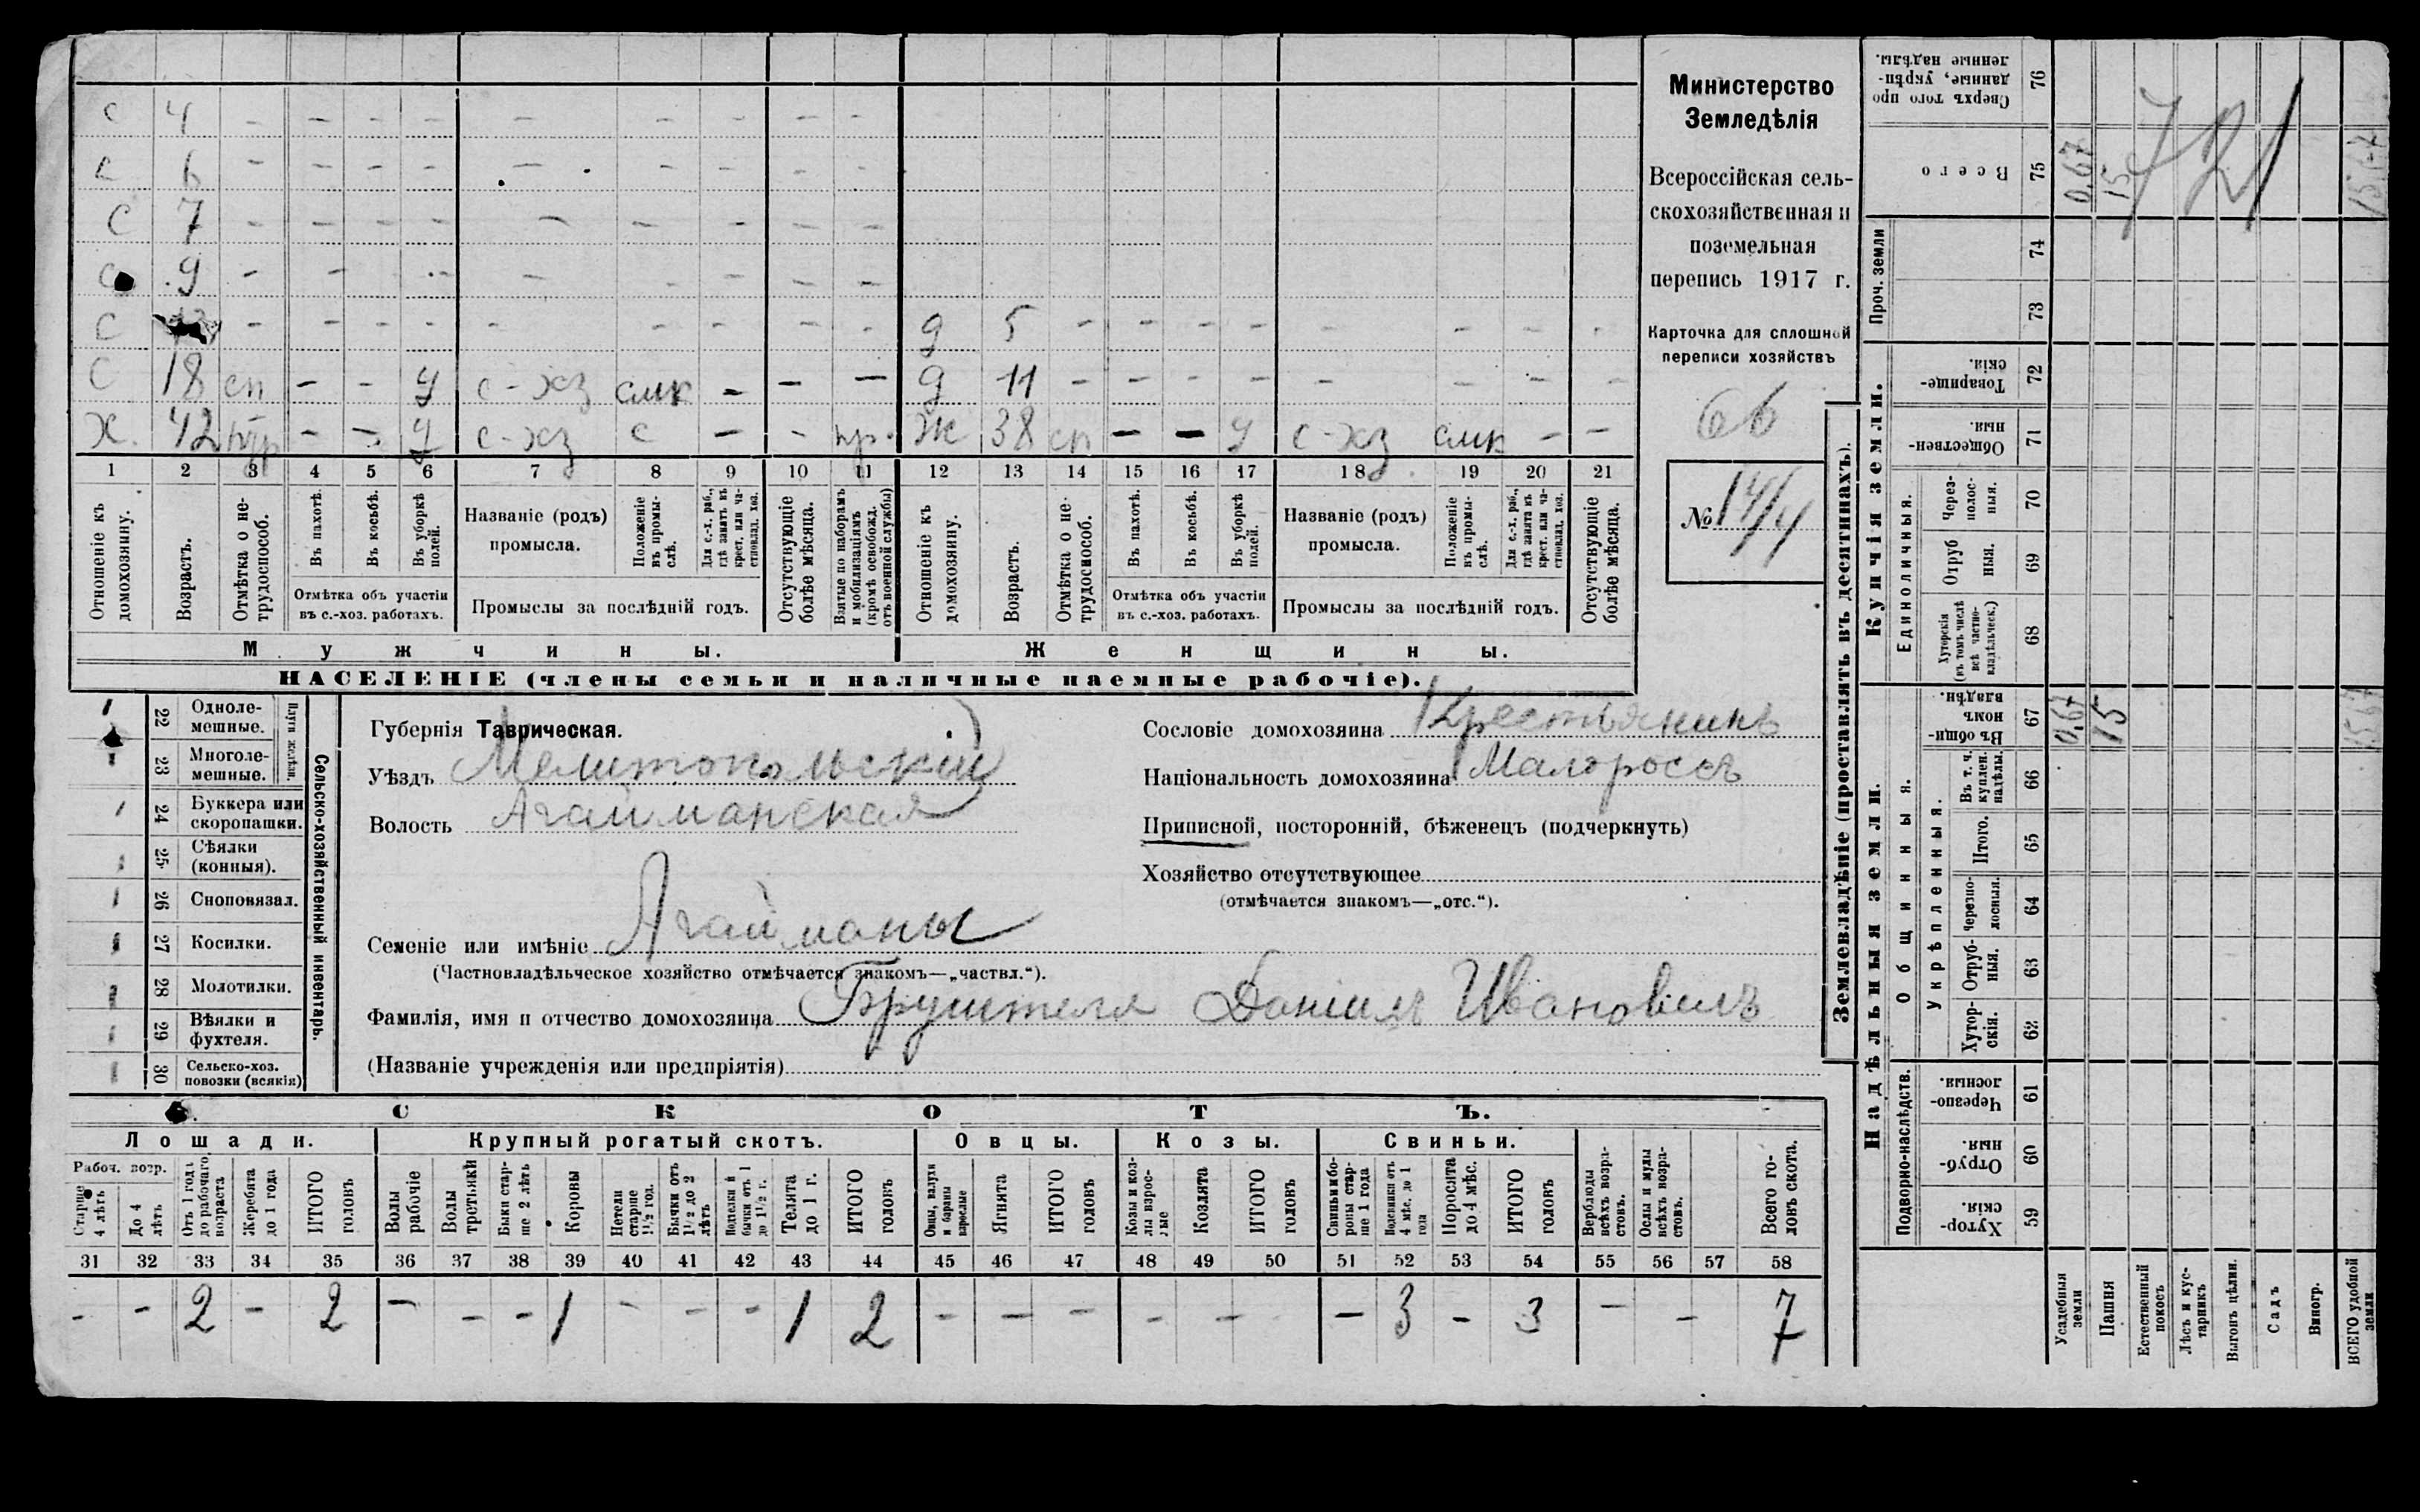 С 4 - - - - - - - - -
С 6 - - - - - - - - -
С 7 - - - - - - - - -
С 9 - - - - - - -
С - - - - - - - - - д 5 - - - - - - - -
С 18 сп - - у с-хз слк - - - д 11 - - - - - - - -
Х. 42 - - у с-хз с - - пр. Ж 38 сп - - у с-хз слк - -
1 2 3 4 5 6 7 8 9 10 11 12 13 14 15 16 17 18 19 20 21
Отношеніе къ домохозяину.
Возрастъ.
Отмѣтка о нетрудоспособ.
Въ пахотѣ.
Въ косьбѣ.
Въ уборкѣ полей.
Отмѣтка объ участіи въ с.-хоз. работахъ.
Названіе (родъ) промысла.
Положеніе въ промыслѣ.
Для с.-х. раб., гдѣ занятъ въ крест. или частновлад. хоз.
Промыслы за послѣдній годъ.
Отсутствующіе болѣе мѣсяца.
Взятые по наборамъ и мобилизаціямъ (кромѣ освобожд. отъ военной службы)
Отношеніе къ домохозяину.
Возрастъ.
Отмѣтка о нетрудоспособ.
Въ пахотѣ.
Въ косьбѣ.
Въ уборкѣ полей.
Отмѣтка объ участіи въ с.-хоз. работахъ.
Названіе (родъ) промысла.
Положеніе въ промыслѣ.
Для с.-х. раб., гдѣ занята въ крест. или частновлад. хоз.
Промыслы за послѣдній годъ.
Отсутствующіе болѣе мѣсяца.
Мужчины. Женщины.
НАСЕЛЕНІЕ (члены семьи и наличные наемные рабочіе).
Министерство
Земледѣлія
Всероссійская сель-
скохозяйственная и
поземельная
перепись 1917 г.
Карточка для сплошной
переписи хозяйствъ
66
№ 14/4
Сельско-хозяйственный инвентарь.
Плуги желѣзн.
1 22 Однолемешные.
1 23 Многолемешные.
1 24 Буккера или скоропашки.
25 Сѣялки (конныя).
1 26 Сноповязал.
27 Косилки.
28 Молотилки.
29 Вѣялки и фухтеля.
30 Сельско-хоз. повозки (всякія)
Губернія Таврическая.
Уѣздъ Мелитопольскій
Волость Агайманская
Селеніе или имѣніе Агайманы
(Частновладѣльческое хозяйство отмѣчается знакомъ—„частвл.“).
Фамилія, имя и отчество домохозяина Даніилъ Ивановичъ
(Названіе учрежденія или предпріятія)
Сословіе домохозяина Крестьянинъ
Національность домохозяина Малороссъ
Приписной, посторонній, бѣженецъ (подчеркнуть)
Хозяйство отсутствующее
(отмѣчается знакомъ—„отс.“).
СКОТЪ.
Лошади. Крупный рогатый скотъ. Овцы. Козы. Свиньи.
Рабоч. возр.
Старше 4 лѣтъ
До 4 лѣтъ
Отъ 1 года до рабочаго возраста
Жеребята до 1 года
ИТОГО головъ
Волы рабочіе
Волы третьяки
Быки старше 2 лѣтъ
Коровы
Нетели старше 1½ год.
Бычки отъ 1½ до 2 лѣтъ
Подтелки и бычки отъ 1 до 1½ г.
Телята до 1 г.
ИТОГО головъ
Овцы, валухи и бараны взрослые
Ягнята
ИТОГО головъ
Козы и козлы взрослые
Козлята
ИТОГО головъ
Свиньи и боровы старше 1 года
Подсвинки отъ 4 мѣс. до 1 года
Поросята до 4 мѣс.
ИТОГО головъ
Верблюды всѣхъ возрастовъ.
Ослы и мулы всѣхъ возрастовъ.
Всего головъ скота.
31 32 33 34 35 36 37 38 39 40 41 42 43 44 45 46 47 48 49 50 51 52 53 54 55 56 57 58
- - 2 - 2 - - - 1 - - - 1 2 - - - - - - 3 - 3 - - 7
Землевладѣніе (проставлять въ десятинахъ).
Купчія земли.
Надѣльныя земли.
Сверхъ того проданные, укрѣпленные надѣлы. 76
Всего 75 0,67 15
Проч. земли 74 73
Товарищескія. 72
Общественныя. 71
Единоличныя.
Черезполосныя. 70
Отрубныя. 69
Хуторскія (въ томъ числѣ всѣ частновладѣльческ.) 68
Общинныя.
Въ общинномъ владѣн. 67 0,67 15 15,67
Укрѣпленныя.
Въ т. ч. куплен. надѣлы. 66
Итого. 65
Черезполосныя. 64
Отрубныя. 63
Хуторскія. 62
Подворно-наслѣдств.
Черезполосныя. 61
Отрубныя. 60
Хуторскія. 59
Усадебныя земли
Пашня
Естественный покосъ
Лѣсъ и кустарникъ
Выгонъ цѣлин.
Садъ
Виногр.
ВСЕГО удобной земли